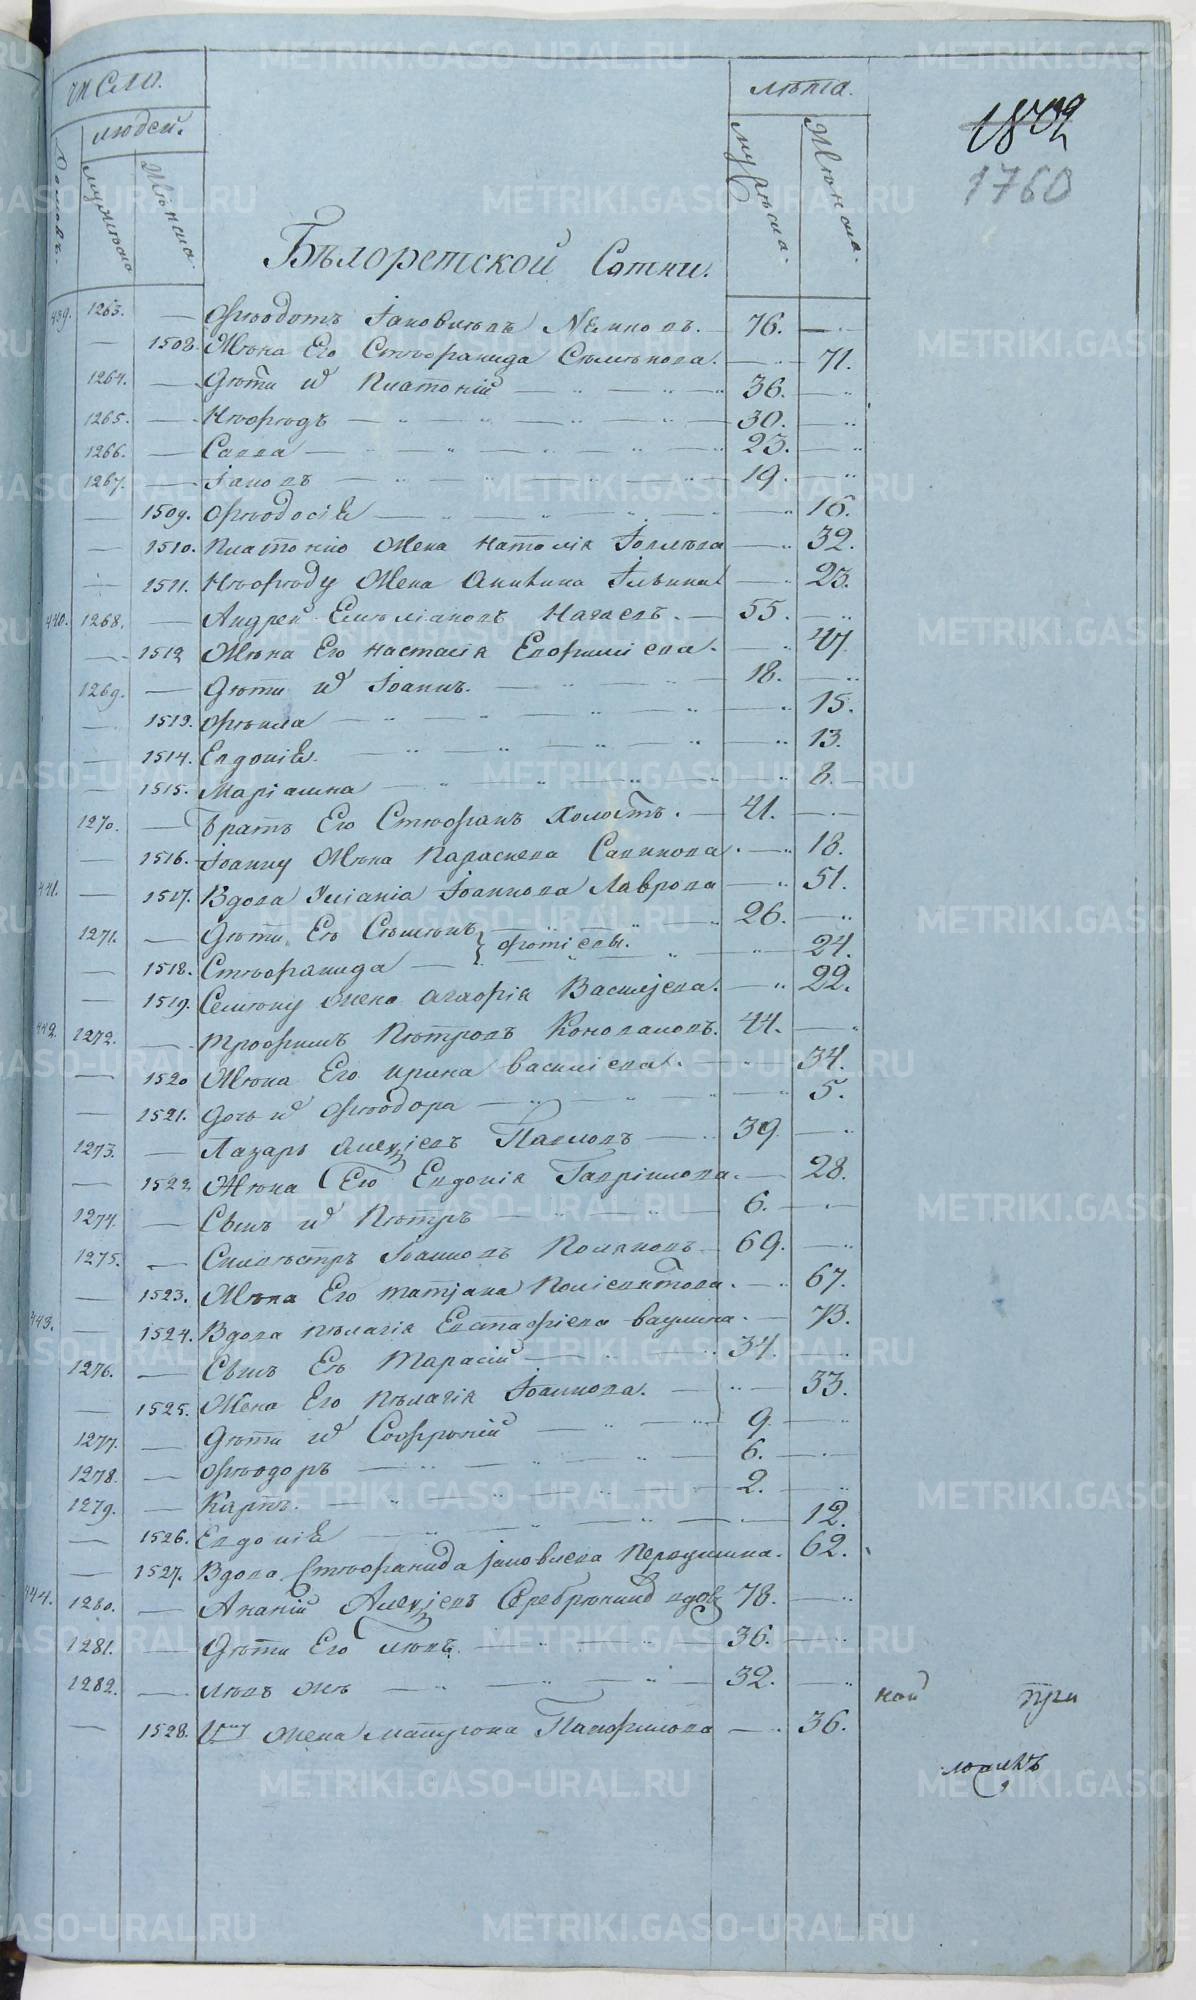 число.
людей.
домовъ.
мужеска
женска.
лѣта.
мужеска.
женска.
1760
Бѣлоретской Сотни.
439. 1263. — Феодотъ Іаковлевъ — 76. —
— 1508. Жена Его Стефанида Семенова. — 71.
1264. — Дѣти их Платоній — 36. —
1265. — Нефедъ — 30. —
1266. — Савва — 23. —
1267. — Іаковъ — 19. —
— 1509. Феодосія — 16.
— 1510. Платонію Жена Наталія Іовлева — 32.
— 1511. Нефеду Жена Акилина Ильина — 23.
440. 1268. — Андрей Емеліановъ Нагаевъ. — 55. —
— 1512. Жена Его Настасія Евфиміева. — 47.
1269. — Дѣти их Іоаннъ. — 18. —
— 1513. Фекла — 15.
— 1514. Евдокія. — 13.
— 1515. Маріамна — 8.
1270. — братъ Его Стефанъ Холостъ. — 41. —
— 1516. Іоанну Жена Параскева Савинова. — 18.
441. — 1517. Вдова Уліанія Іоаннова Лаврова — 51.
1271. — Дѣти Ея Семенъ } Фотіевы. — 26. —
— 1518. Стефанида — 24.
— 1519. Семену жена Агафія Васильева. — 22.
442. 1272. — Трофимъ Петровъ Коновалов. 44. —
— 1520 Жена Его Ирина Василіева. — 34.
— 1521. Дочь их Феодора — 5.
1273. — Лазарь Алексіевъ Павловъ — 39 —
— 1522. Жена Его Евдокія Гавріилова. — 28.
1274. — Сынъ их Петръ — 6. —
1275. — Силвестръ Іоанновъ Поляковъ — 69. —
— 1523. Жена Его Татіана Поліевктова. — 67.
443. — 1524. Вдова Пелагія Евстафіева Ваулина. — 73.
1276. — Сынъ Ея Тарасій — 34. —
— 1525. Жена Его Пелагія Іоаннова. — 33.
1277. — Дѣти их Софроній — 9. —
1278. — Феодоръ — 6. —
1279. — Карпъ. — 2. —
— 1526. Евдокія — 12.
— 1527. Вдова Стефанида Іаковлева Первушина. 62.
444. 1280. — Ананій Алексіевъ вдовъ 78. —
1281. — Дѣти Его — 36. —
1282. — левъ же — 32. —
— 1528. Жена Матрона Памфилова — 36.
ной при